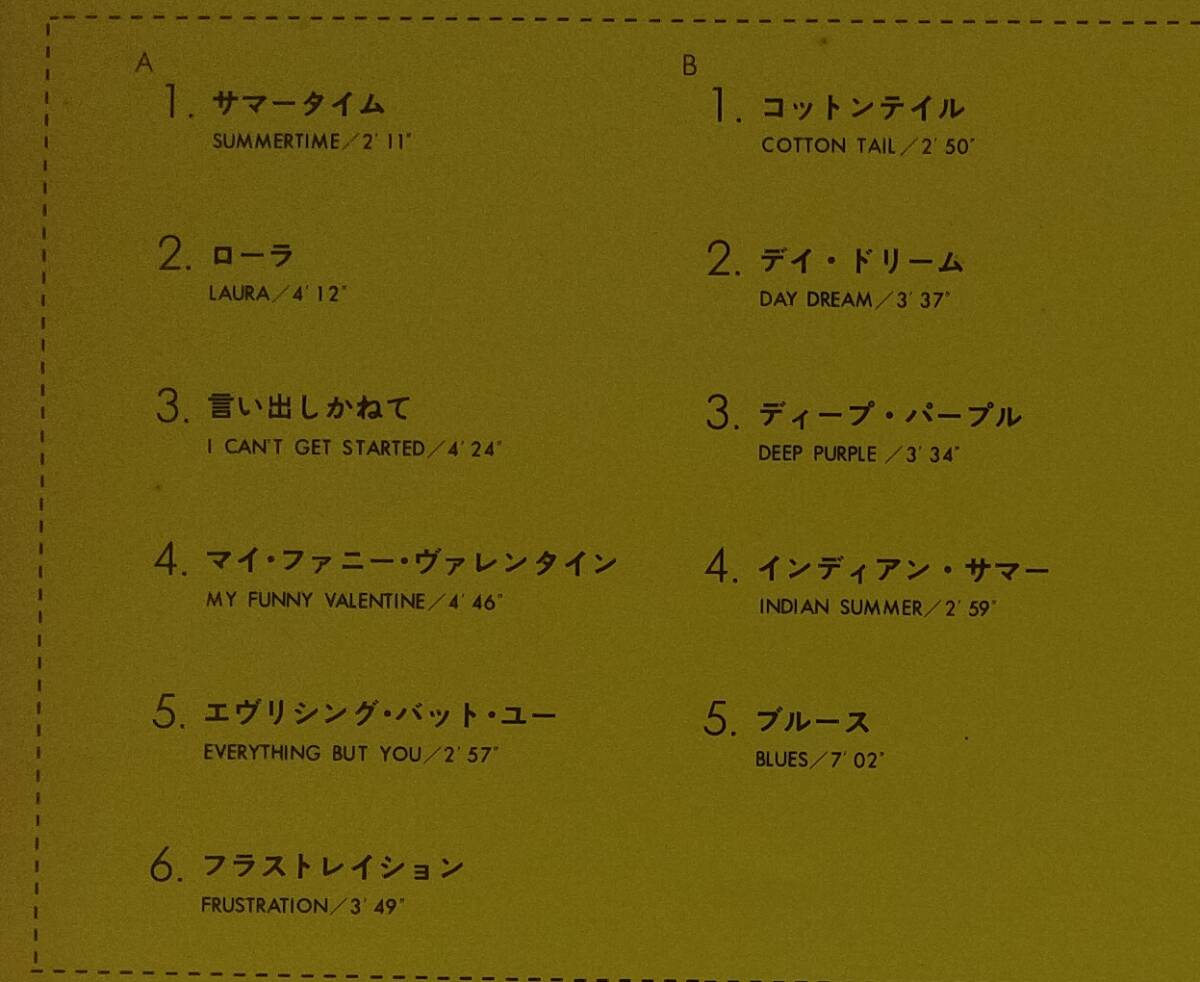 A
1. サマータイム
SUMMERTIME／2' 11"
2. ローラ
LAURA／4' 12"
3. 言い出しかねて
I CAN'T GET STARTED／4' 24"
4. マイ・ファニー・ヴァレンタイン
MY FUNNY VALENTINE／4' 46"
5. エヴリシング・バット・ユー
EVERYTHING BUT YOU／2' 57"
6. フラストレイション
FRUSTRATION／3' 49"
B
1. コットンテイル
COTTON TAIL／2' 50"
2. デイ・ドリーム
DAY DREAM／3' 37"
3. ディープ・パープル
DEEP PURPLE ／3' 34"
4. インディアン・サマー
INDIAN SUMMER／2' 59"
5. ブルース
BLUES／7' 02"